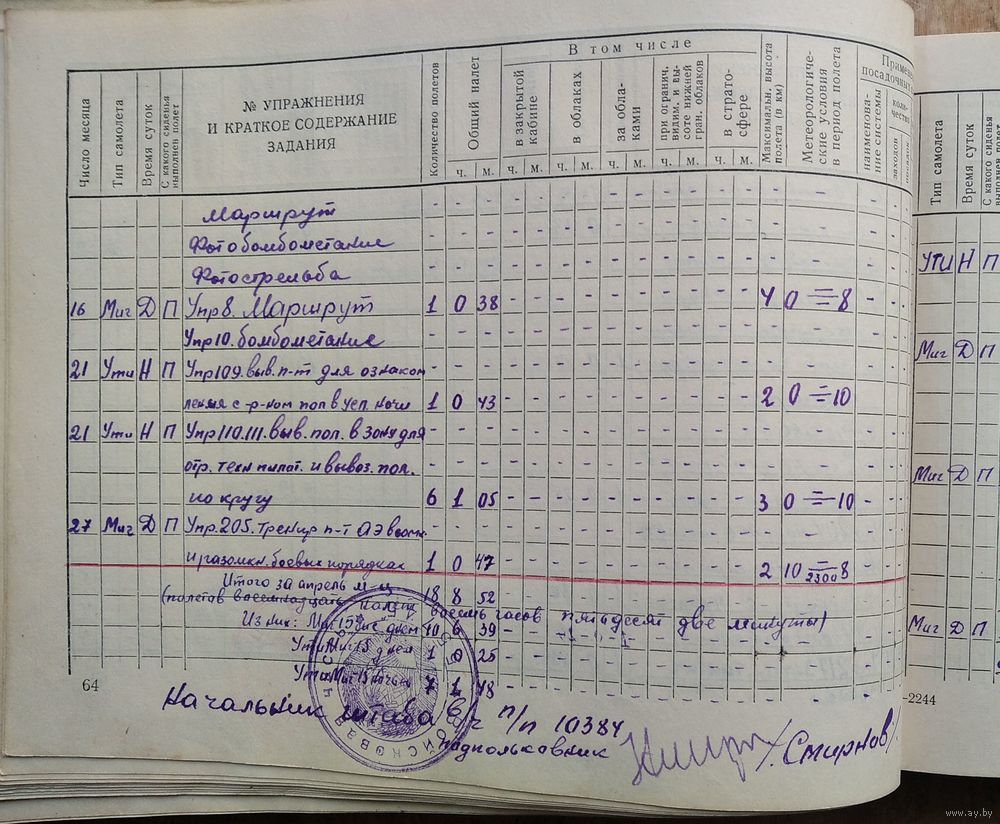 В том числе
Число месяца
Тип самолета
Время суток
С какого сиденья выполнен полет
№ УПРАЖНЕНИЯ
И КРАТКОЕ СОДЕРЖАНИЕ
ЗАДАНИЯ
Количество полетов
Общий налет
в закрытой кабине
в облаках
за облаками
при огранич. видим. и высоте нижней гран. облаков
в стратосфере
Максимальн. высота полета (в км)
Метеорологические условия в период полета
Примене
посадочных
наименование системы
количество
заходов
ч. м. ч. м. ч. м. ч. м. ч. м. ч. м.
Маршрут
Фотобомбометание
Фотострельба
16 Миг Д П Упр 8. Маршрут 1 0 38 - - - - - - - - - - 4 0 8 - -
Упр 10. бомбометание
21 Ути Н П Упр 109. выв. п-т для ознаком
ления с р-ном пол в усл. ночи 1 0 43 - - - - - - - - - - 2 0 10 - -
21 Ути Н П Упр 110. 111. выв. пол. в зону для
отр. техн пилот. и вывоз. пол.
по кругу 6 1 05 - - - - - - - - - - 3 0 10 - -
27 Миг Д П Упр. 205. Тренир п-т
и разомкн. боевых порядках 1 0 47 - - - - - - - - - - 2 10 2300 8 - -
Итого за апрель м-ц 18 8 52
(полетов восемнадцать налет восемь часов пятьдесят две минуты)
Из них: Миг 15 бис днем 10 6 39
Ути Миг 15 днем 1 0 25
Ути Миг 15 ночью 7 1 48
64
Начальник штаба в/ч п/п 10384
подполковник /Смирнов/
Тип самолета
Время суток
С какого сиденья выполнен полет
УТИ Н П
Миг Д П
Миг Д П
Миг Д П
-2244
www.ay.by